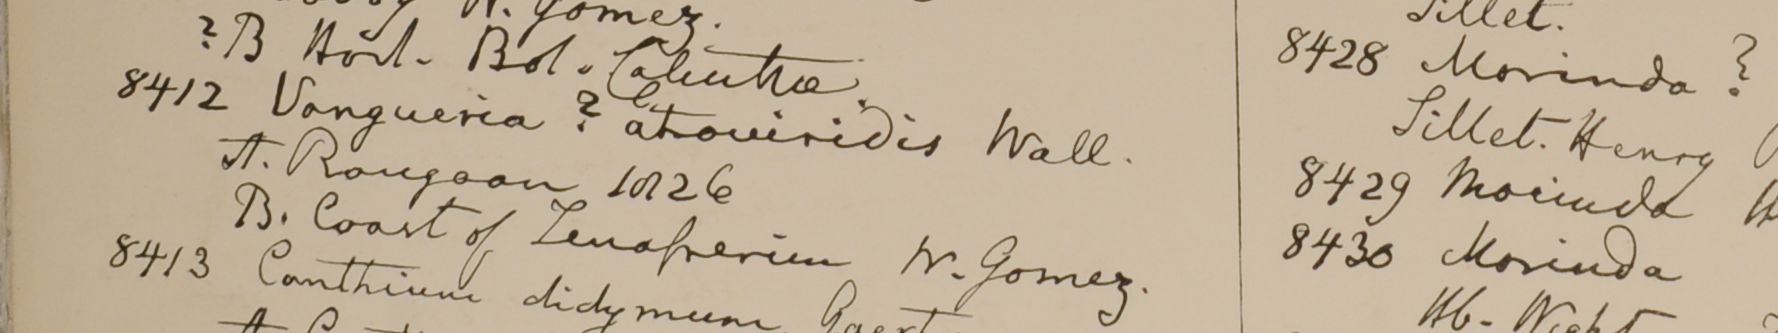 W. Gomez.
? B Hort. Bot. Calcuttae.
8412 Vangueria ? atroviridis Wall.
A. Rangoon 1826
B. Coast of Tenasserim W. Gomez.
8413 Canthium didymum Gaert
Sillet.
8428 Morinda ?
Sillet. Henry
8429 Morinda
8430 Morinda
Hb. Wight